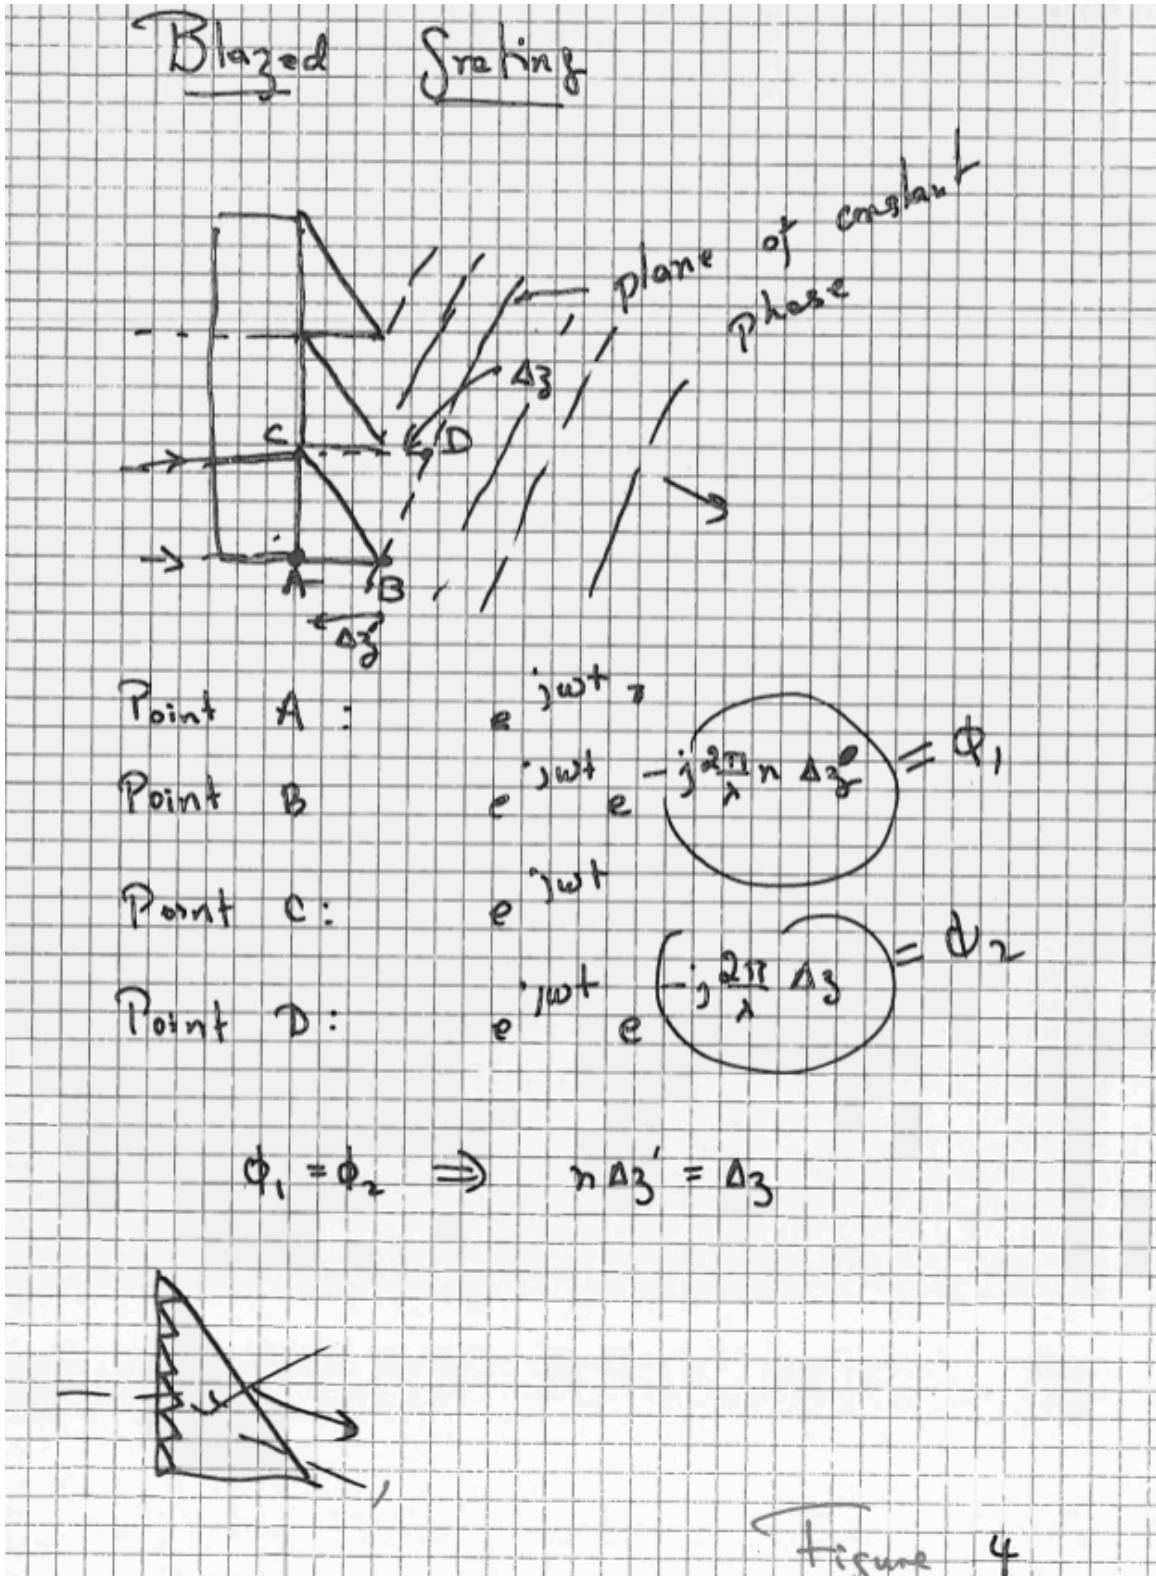 Blazed Grating
plane of constant
phase
Δz
C
D
A
B
Δz'
Point A : e^{jωt},
Point B e^{jωt} e^{-j 2π/λ n Δz'} = ϕ₁
Point C: e^{jωt}
Point D: e^{jωt} e^{-j 2π/λ Δz} = ϕ₂
ϕ₁ = ϕ₂ ⇒ n Δz' = Δz
Figure 4